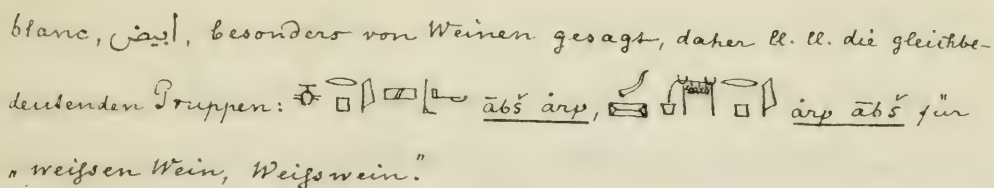 blanc, أبيض, besonders von Weinen gesagt, daher ll. ll. die gleichbe-
deutenden Gruppen: ābš ȧrp, ȧrp ābš für
„weißen Wein, Weißwein."